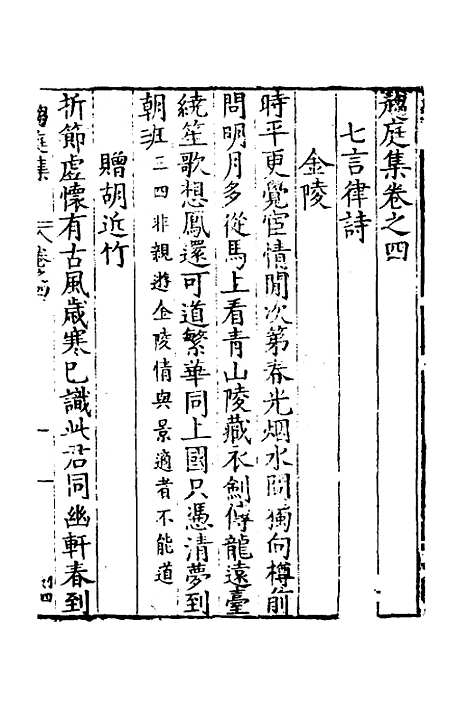 趨庭集卷之四
七言律詩
金陵
時平更覺宦情閒次第春光烟水間獨向樽前
問明月多從馬上看青山陵藏衣劍傳龍遠臺
繞笙歌想鳳還可道繁華同上國只憑清夢到
朝班三四非親遊金陵情與景適者不能道
贈胡近竹
折節虛懷有古風歲寒已識此君同幽軒春到
趨庭集
卷之四
一